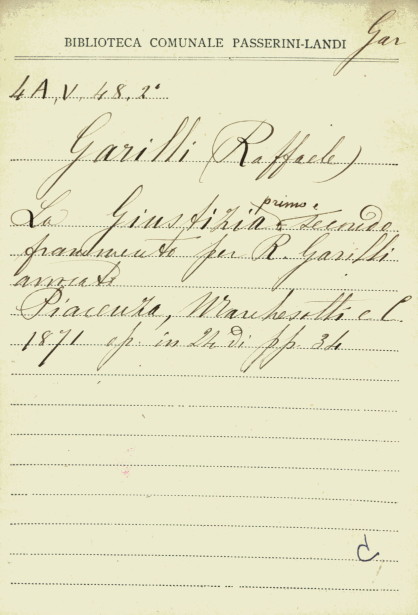 Gar
BIBLIOTECA COMUNALE PASSERINI-LANDI
4A, V, 48, 2°
Garilli (Raffaele)
primo e
La Giustizia secondo
frammento per R. Garilli
avvocato
Piacenza, Marchesotti e C.
1871 op. in 24 di pp. 34
C